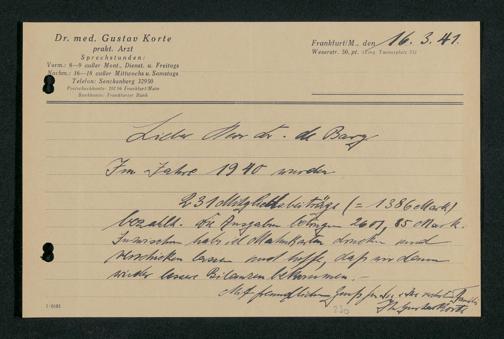 Dr. med. Gustav Korte
prakt. Arzt
Sprechstunden:
Vorm.: 8—9 außer Mont., Dienst. u. Freitags
Nachm.: 16—18 außer Mittwochs u. Samstags
Telefon: Senckenberg 32950
Postscheckkonto: Frankfurt/Main
Bankkonto: Frankfurter Bank
Frankfurt/M., den 16. 3. 41.
Weserstr. 50, pt.
Lieber Herr Dr. de Bary
Im Jahre 1940 wurden
231 Mitgliedsbeiträge (= 1386 Mark)
bezahlt. Die Ausgaben betrugen 2601,85 Mark.
Inzwischen hab ich Mahnkarten drucken und
verschicken lassen und hoffe, daß wir dann
wieder bessere Bilanzen bekommen. —
Mit freundlichem Gruß
Ihr Gustav Korte
230